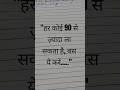 "हर कोई 90 से
ज़्यादा ला
सकता है, बस
ये करें....."